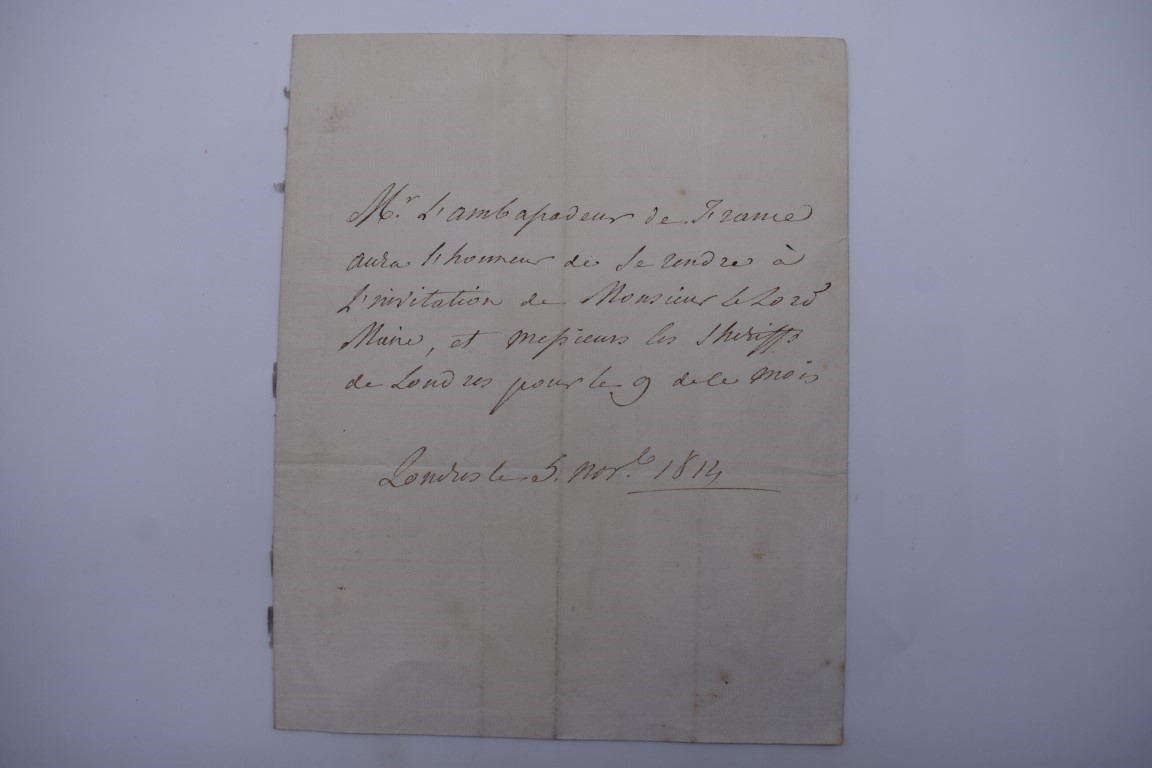 Mr. L'ambassadeur de France
aura l'honneur de se rendre à
L'invitation de Monsieur le Lord
Maire, et messieurs les Sheriffs
de Londres pour le 9 de ce mois
Londres le 5. Nov.le 1814